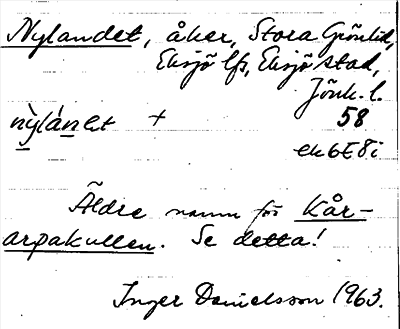 Nylandet, åker, Stora Grönlid,
Eksjö lfs, Eksjö stad,
Jönk. l.
nỳlánet + 58
ek6E8i
Äldre namn för Kår-
arpakullen. Se detta!
Inger Danielsson 1963.